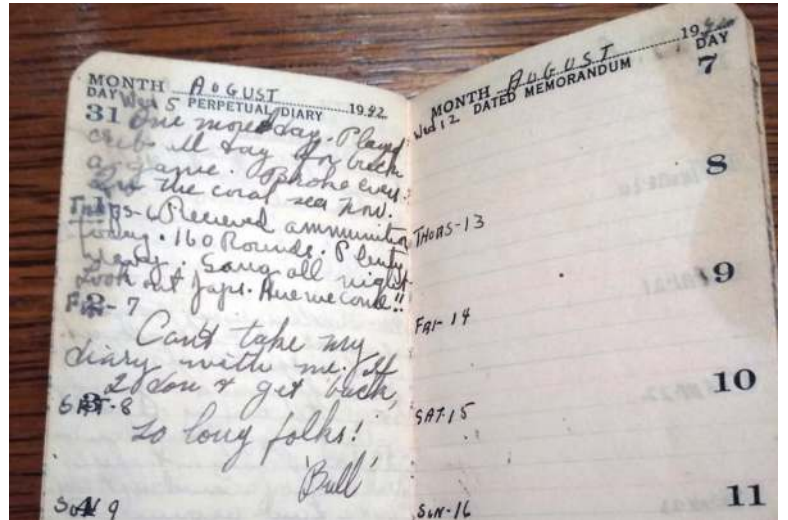 MONTH AUGUST 1942
DAY Wed 5 PERPETUAL DIARY
31 One more day. Played
crib all day for buck
a game. phone
In the coral sea now.
Thurs-6 Recieved ammunition
today. 160 Rounds. Plenty
heavy. Sang all night
Look out Japs. Here we come!!
Fri-7
Can't take my
diary with me. If
I don't get back,
SAT-8
So long folks!
'Bull'
SUN 9
MONTH AUGUST 1942
DATED MEMORANDUM DAY
7
Wed 12
8
THURS-13
9
FRI-14
10
SAT-15
11
SUN-16